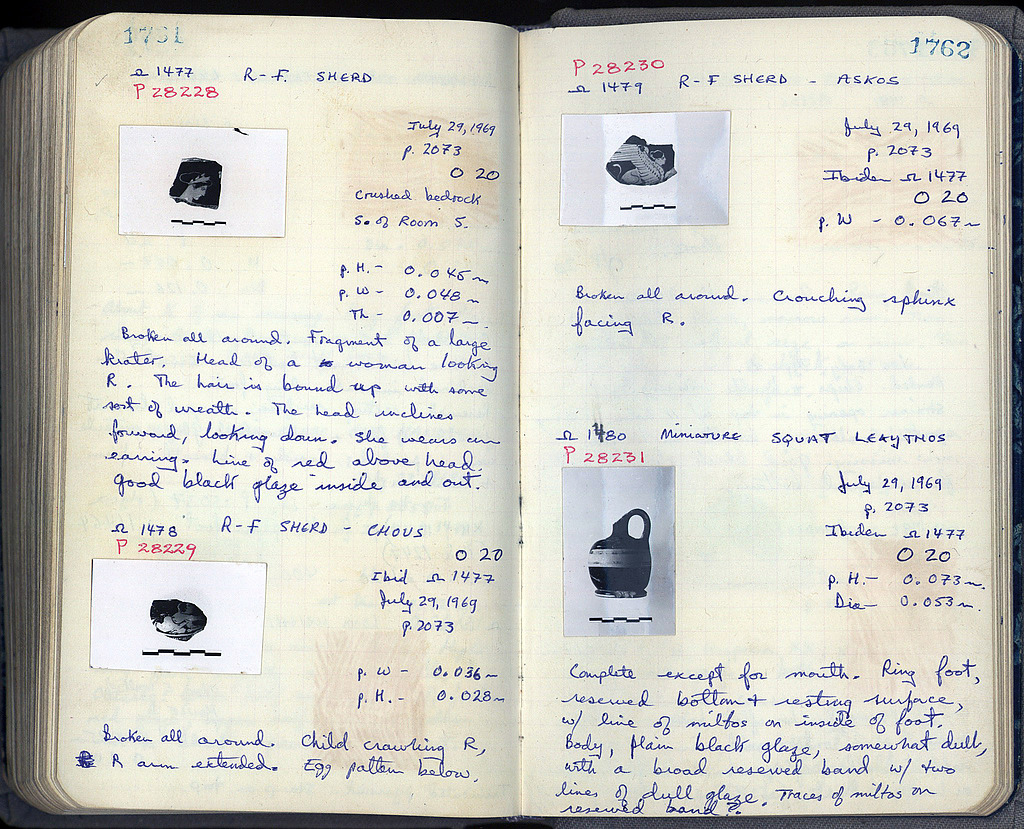 1761
Ω 1477 R-F. SHERD
P 28228
July 29, 1969
p. 2073
O 20
Crushed bedrock
So. of Room 5.
p. H. - 0.045 m
p. W - 0.048 m
Th - 0.007 m.
Broken all around. Fragment of a large
krater. Head of a woman looking
R. The hair is bound up with some
sort of wreath. The head inclines
forward, looking down. She wears an
earring. Line of red above head.
Good black glaze inside and out.
Ω 1478 R-F SHERD - CHOUS
P 28229
O 20
Ibid Ω 1477
July 29, 1969
p. 2073
p. W - 0.036 m
p. H. - 0.028 m
Broken all around. Child crawling R,
R arm extended. Egg pattern below.
1762
P 28230
Ω 1479 R-F SHERD - ASKOS
July 29, 1969
p. 2073
Ibidem Ω 1477
O 20
p. W - 0.067 m
Broken all around. Crouching sphinx
facing R.
Ω 1480 MINIATURE SQUAT LEKYTHOS
P 28231
July 29, 1969
p. 2073
Ibidem Ω 1477
O 20
p. H. - 0.073 m.
Dia - 0.053 m.
Complete except for mouth. Ring foot,
reserved bottom + resting surface,
w/ line of miltos on inside of foot.
Body, plain black glaze, somewhat dull,
with a broad reserved band w/ two
lines of dull glaze. Traces of miltos on
reserved band?